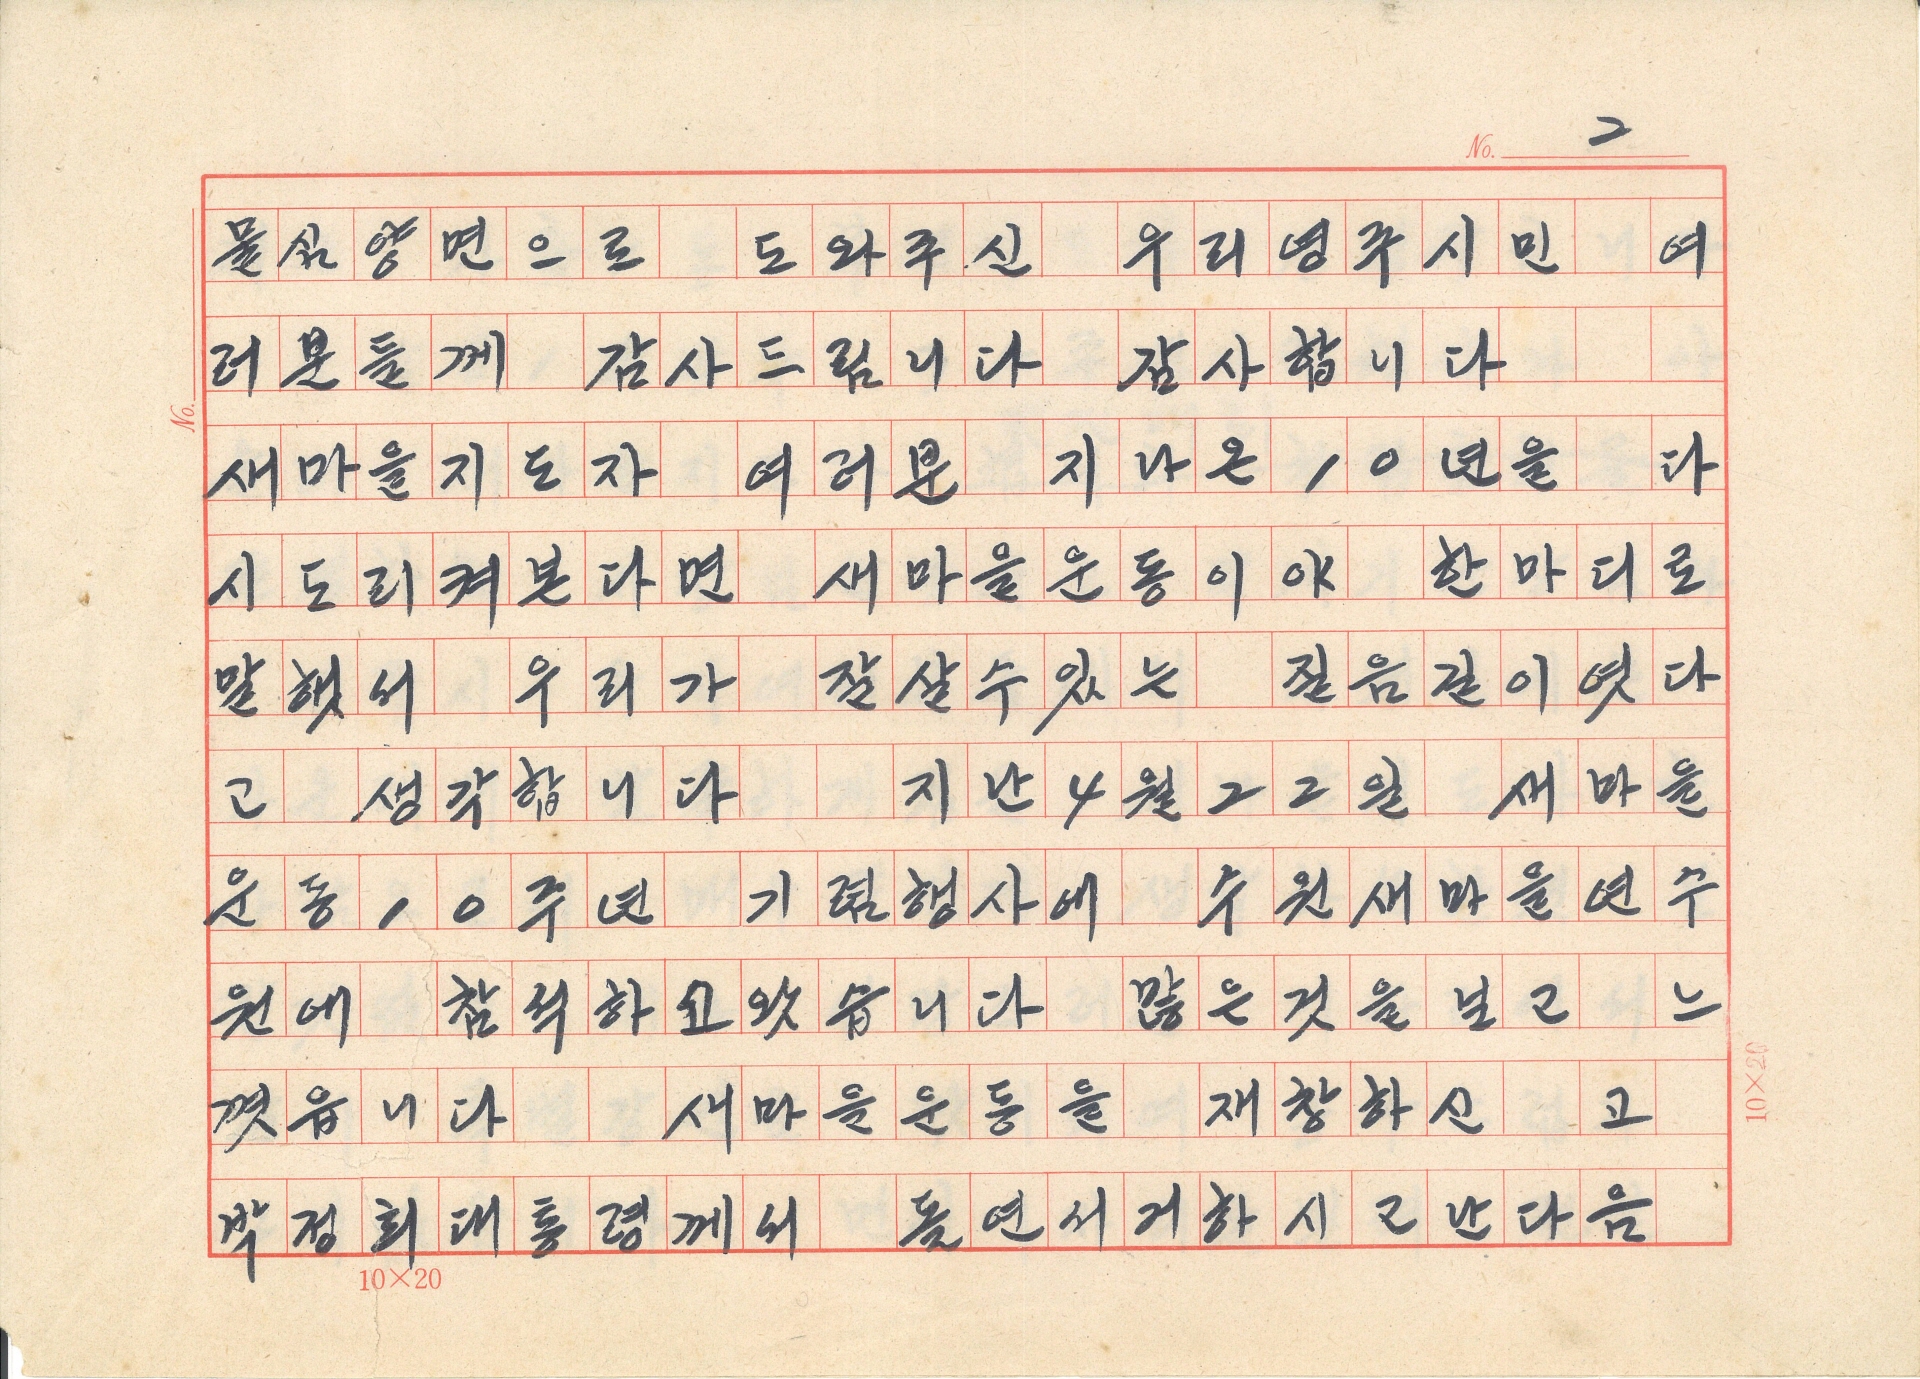 No. 2
물심양면으로 도와주신 우리영주시민 여
러분들께 감사드림니다 감사합니다
새마을지도자 여러분 지나온 10년을 다
시도리켜본다면 새마을운동이야 한마디로
말했서 우리가 잘살수있는 질음길이엿다
고 생각합니다 지난4월22일 새마을
운동10주년 기렴행사에 수원새마을연수
원에 참석하고왓습니다 많은것을보고 느
꼇읍니다 새마을운동을 재창하신 고
박정희대통령께서 돌연서거하시고난다음
No.
10×20
10×20